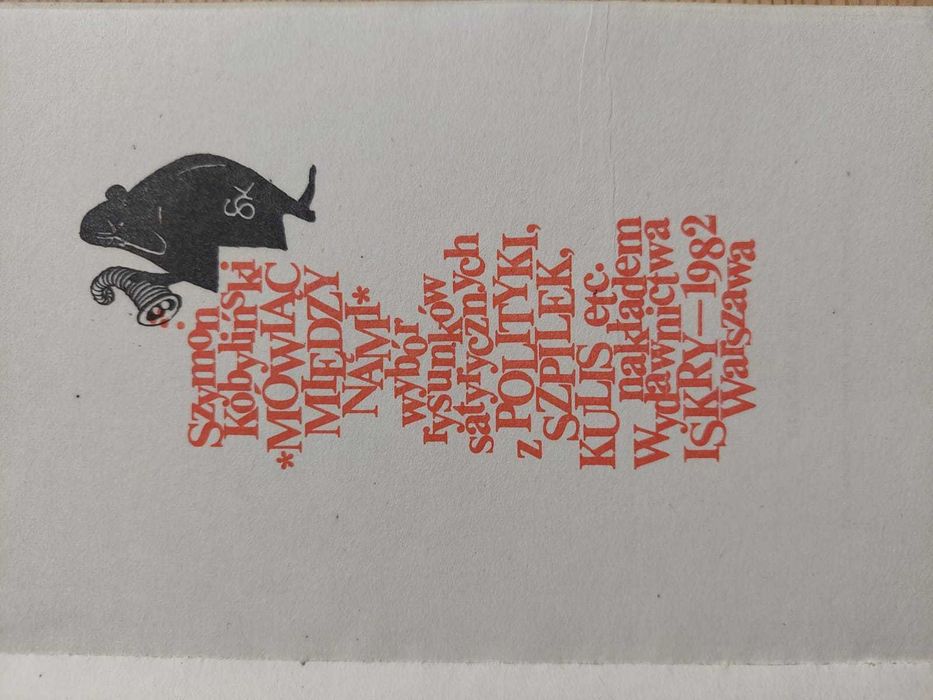 Szymon
Kobyliński
*MÓWIĄC
MIĘDZY
NAMI*
wybór
rysunków
satyrycznych
z POLITYKI,
SZPILEK,
KULIS etc.
nakładem
Wydawnictwa
ISKRY—1982
Warszawa